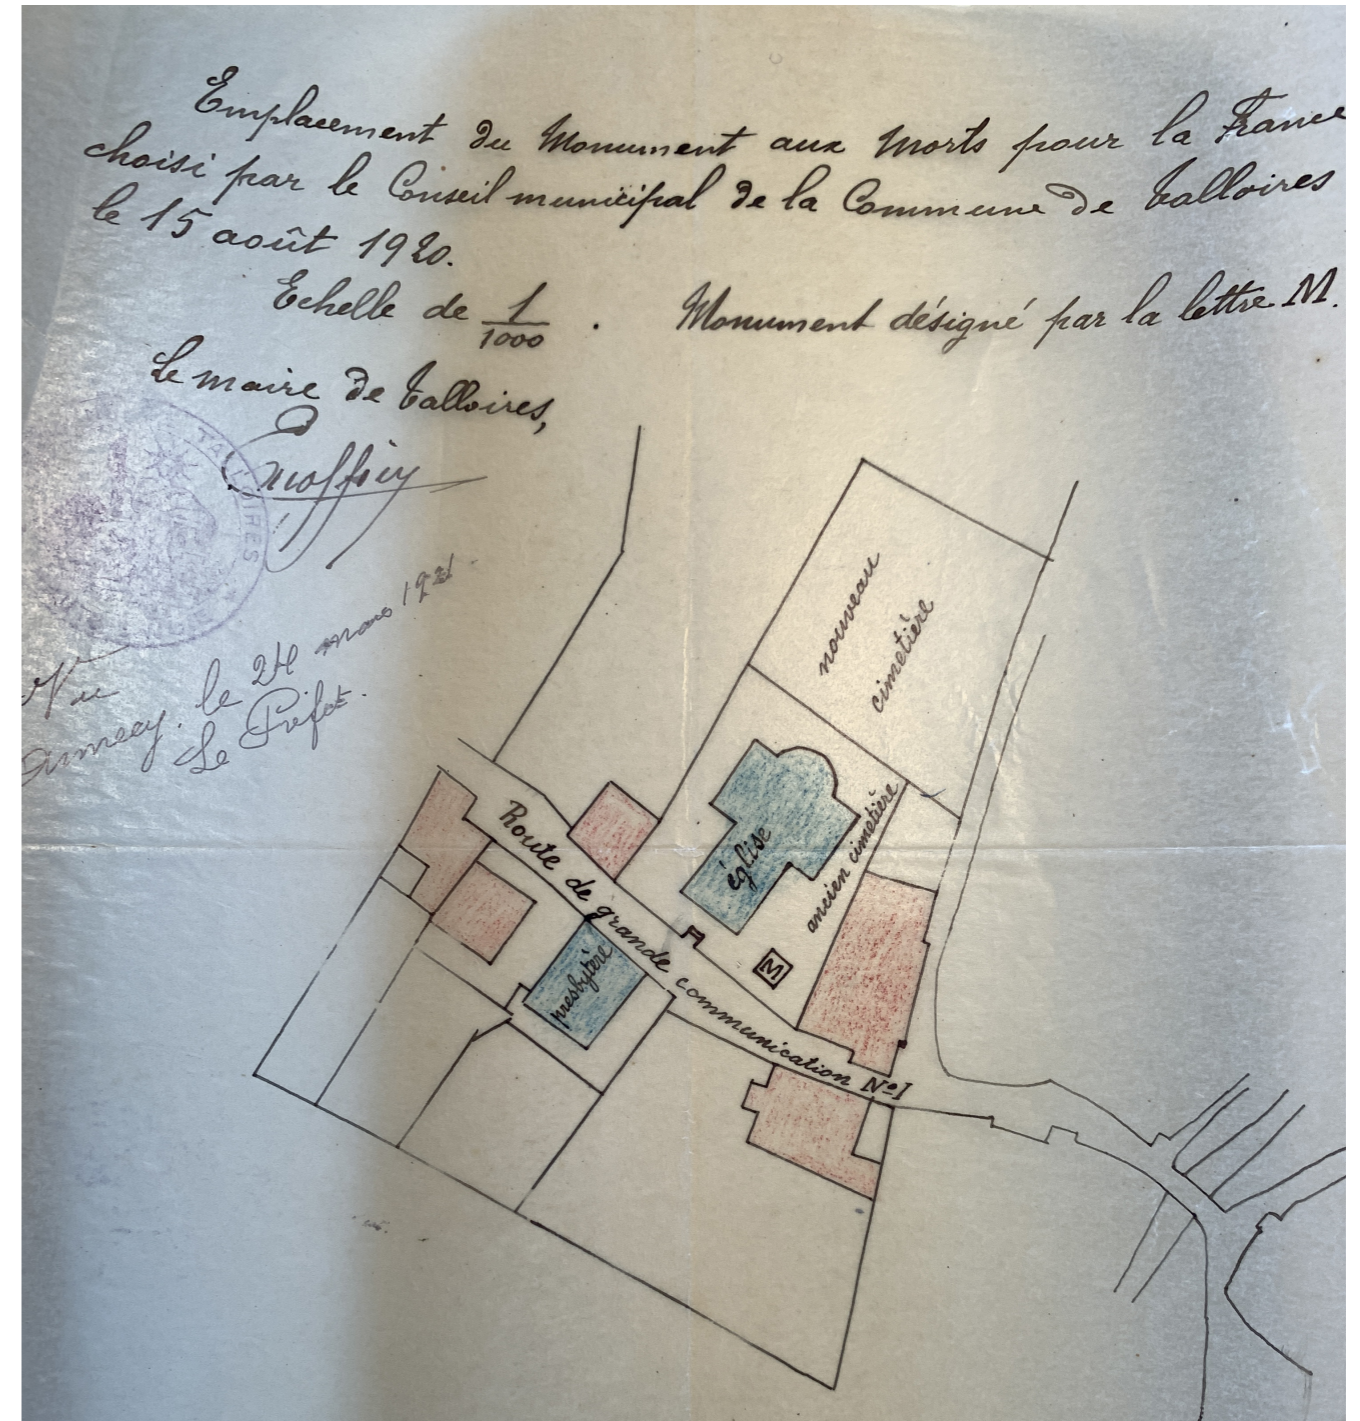 Emplacement du Monument aux Morts pour la France
choisi par le Conseil municipal de la Commune de Talloires
le 15 août 1920.
Echelle de 1/1000 . Monument désigné par la lettre M.
Le maire de Talloires,
TALLOIRES
Vu
Annecy. le 24 mars 1921
Le Préfet.
nouveau
cimetière
église
ancien cimetière
Route de grande communication No I
presbytère
M